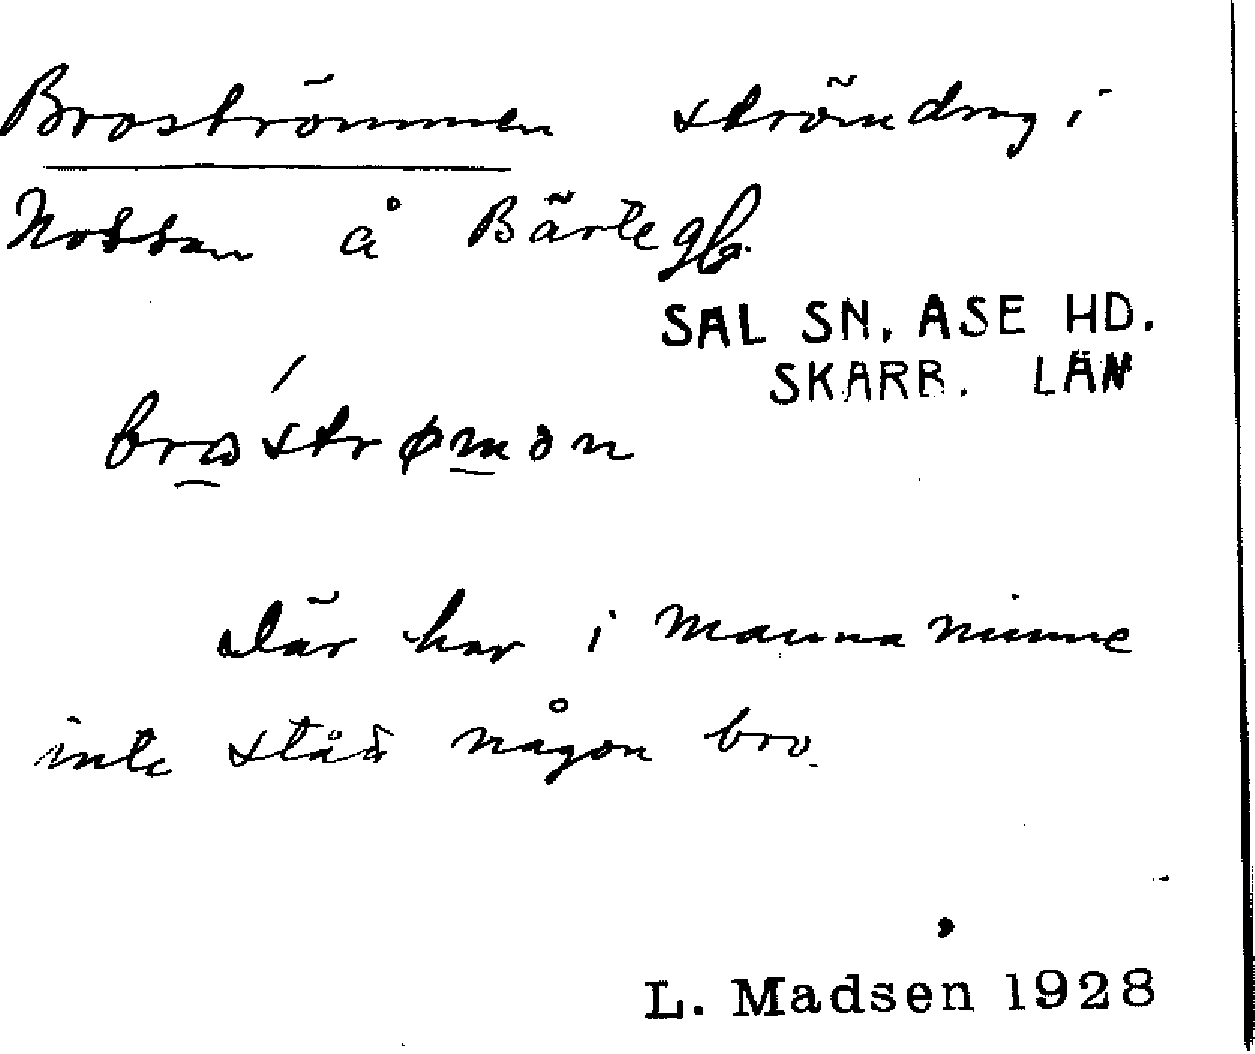 Broströmmen strömdrag i
Nossan å Bärteg
SAL SN. ASE HD.
SKARB. LÄN
Där har i manna minne
inte stått någon bro.
L. Madsen 1928